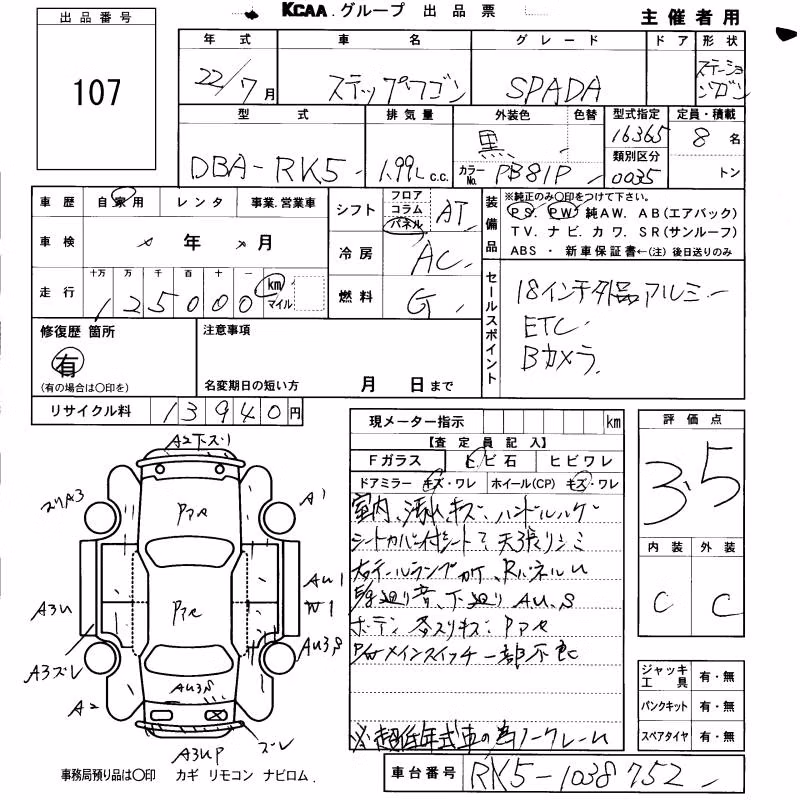 KCAA.グループ 出品票
主催者用
出品番号
107
年式 車名 グレード ドア 形状
22/7月 ステップワゴン SPADA ステーションワゴン
型式 排気量 外装色 色替 型式指定 定員・積載
DBA-RK5 1.99L c.c. 黒 カラーNo. PB81P 16365 8名
類別区分 0035 トン
車歴 自家用 レンタ 事業.営業車
車検 年 月
走行 十万 万 千 百 十 一
125000 km マイル
シフト フロア コラム パネル AT
冷房 AC
燃料 G
装備品 ※純正のみ○印をつけて下さい。
PS. PW. 純AW. AB(エアバック)
TV. ナビ. カワ. SR(サンルーフ)
ABS ・ 新車保証書←(注)後日送りのみ
セールスポイント
18インチ外品アルミ
ETC
Bカメラ
修復歴 箇所
有
(有の場合は○印を)
注意事項
名変期日の短い方 月 日まで
リサイクル料 13940円
現メーター指示 km
【査定員記入】
Fガラス ヒビ石 ヒビワレ
ドアミラー キズ・ワレ ホイール(CP) キズ・ワレ
室内、汚れ、キズ、ハンドルハゲ
シートカバー付シート 天張りシミ
右テールランプ カケ、RパネルU
下廻り AU.S
ボデー 各スリキズ PアA
P/Wメインスイッチ一部不良
※超低年式車の為ノークレーム
評価点
3.5
内装 外装
C C
ジャッキ工具 有・無
パンクキット 有・無
スペアタイヤ 有・無
A2下ズ1
ズリA3
A1
PアA
PアA
A3U
AU1
W1
A3ズレ
AU3S
A2
AU3S
A3UP
ズレ
事務局預り品は○印 カギ リモコン ナビロム.
車台番号 RK5-1038752